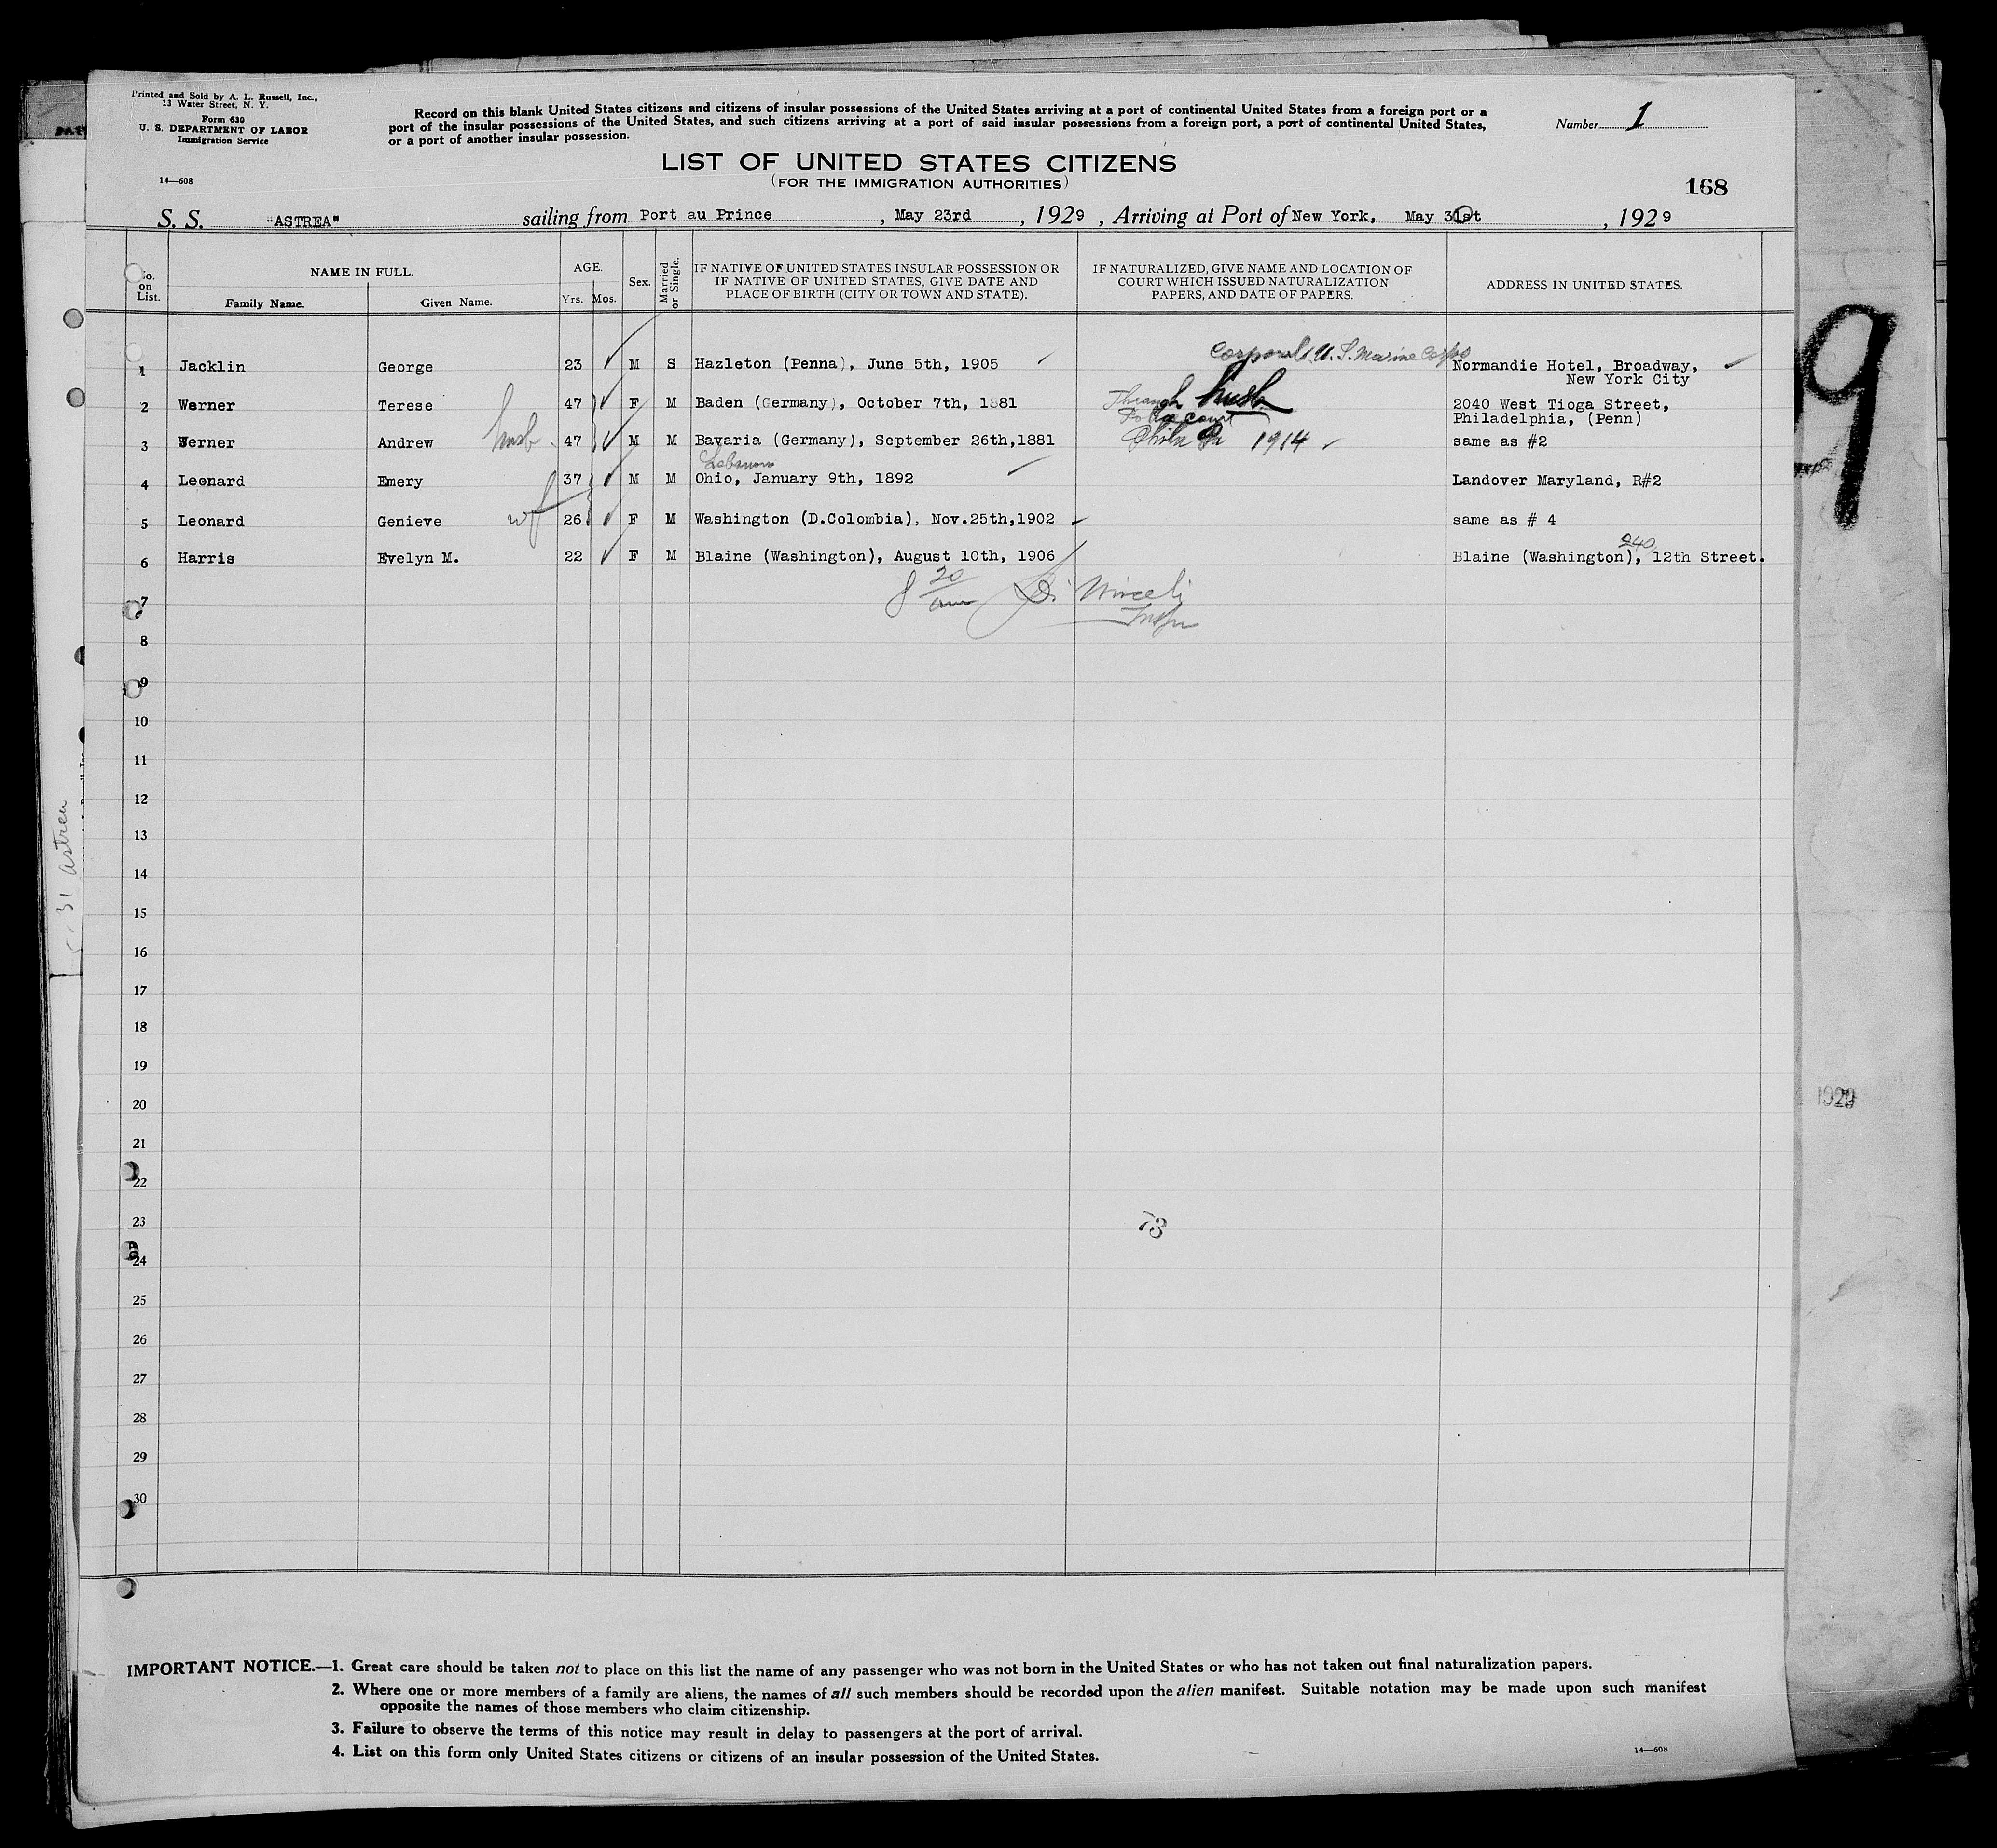 Printed and Sold by A. L. Russell, Inc.,
13 Water Street, N. Y.
Form 630
U. S. DEPARTMENT OF LABOR
Immigration Service
14—608
Record on this blank United States citizens and citizens of insular possessions of the United States arriving at a port of continental United States from a foreign port or a
port of the insular possessions of the United States, and such citizens arriving at a port of said insular possessions from a foreign port, a port of continental United States,
or a port of another insular possession.
Number 1
LIST OF UNITED STATES CITIZENS
(FOR THE IMMIGRATION AUTHORITIES)
168
S. S. "ASTREA" sailing from Port au Prince, May 23rd, 1929, Arriving at Port of New York, May 31st, 1929
No. on List.
NAME IN FULL.
Family Name. Given Name.
AGE.
Yrs. Mos.
Sex.
Married or Single.
IF NATIVE OF UNITED STATES INSULAR POSSESSION OR
IF NATIVE OF UNITED STATES, GIVE DATE AND
PLACE OF BIRTH (CITY OR TOWN AND STATE).
IF NATURALIZED, GIVE NAME AND LOCATION OF
COURT WHICH ISSUED NATURALIZATION
PAPERS, AND DATE OF PAPERS.
ADDRESS IN UNITED STATES.
Corporal U. S. Marine Corps
1 Jacklin George 23 M S Hazleton (Penna), June 5th, 1905 Normandie Hotel, Broadway,
New York City
Through husb
2 Werner Terese 47 F M Baden (Germany), October 7th, 1881 2040 West Tioga Street,
Philadelphia, (Penn)
Court
3 Werner Andrew husb. 47 M M Bavaria (Germany), September 26th,1881 Phila Pa 1914 same as #2
Lebanon
4 Leonard Emery 37 M M Ohio, January 9th, 1892 Landover Maryland, R#2
5 Leonard Genieve wf 26 F M Washington (D.Colombia), Nov.25th,1902 same as # 4
240
6 Harris Evelyn M. 22 F M Blaine (Washington), August 10th, 1906 Blaine (Washington), 12th Street.
8 20/am
7
Inspr
8
9
10
11
12
13
14
15
16
17
18
19
20
21
22
23
73
24
25
26
27
28
29
30
IMPORTANT NOTICE.—1. Great care should be taken not to place on this list the name of any passenger who was not born in the United States or who has not taken out final naturalization papers.
2. Where one or more members of a family are aliens, the names of all such members should be recorded upon the alien manifest. Suitable notation may be made upon such manifest
opposite the names of those members who claim citizenship.
3. Failure to observe the terms of this notice may result in delay to passengers at the port of arrival.
4. List on this form only United States citizens or citizens of an insular possession of the United States.
14—608
31 Astrea
9
1929